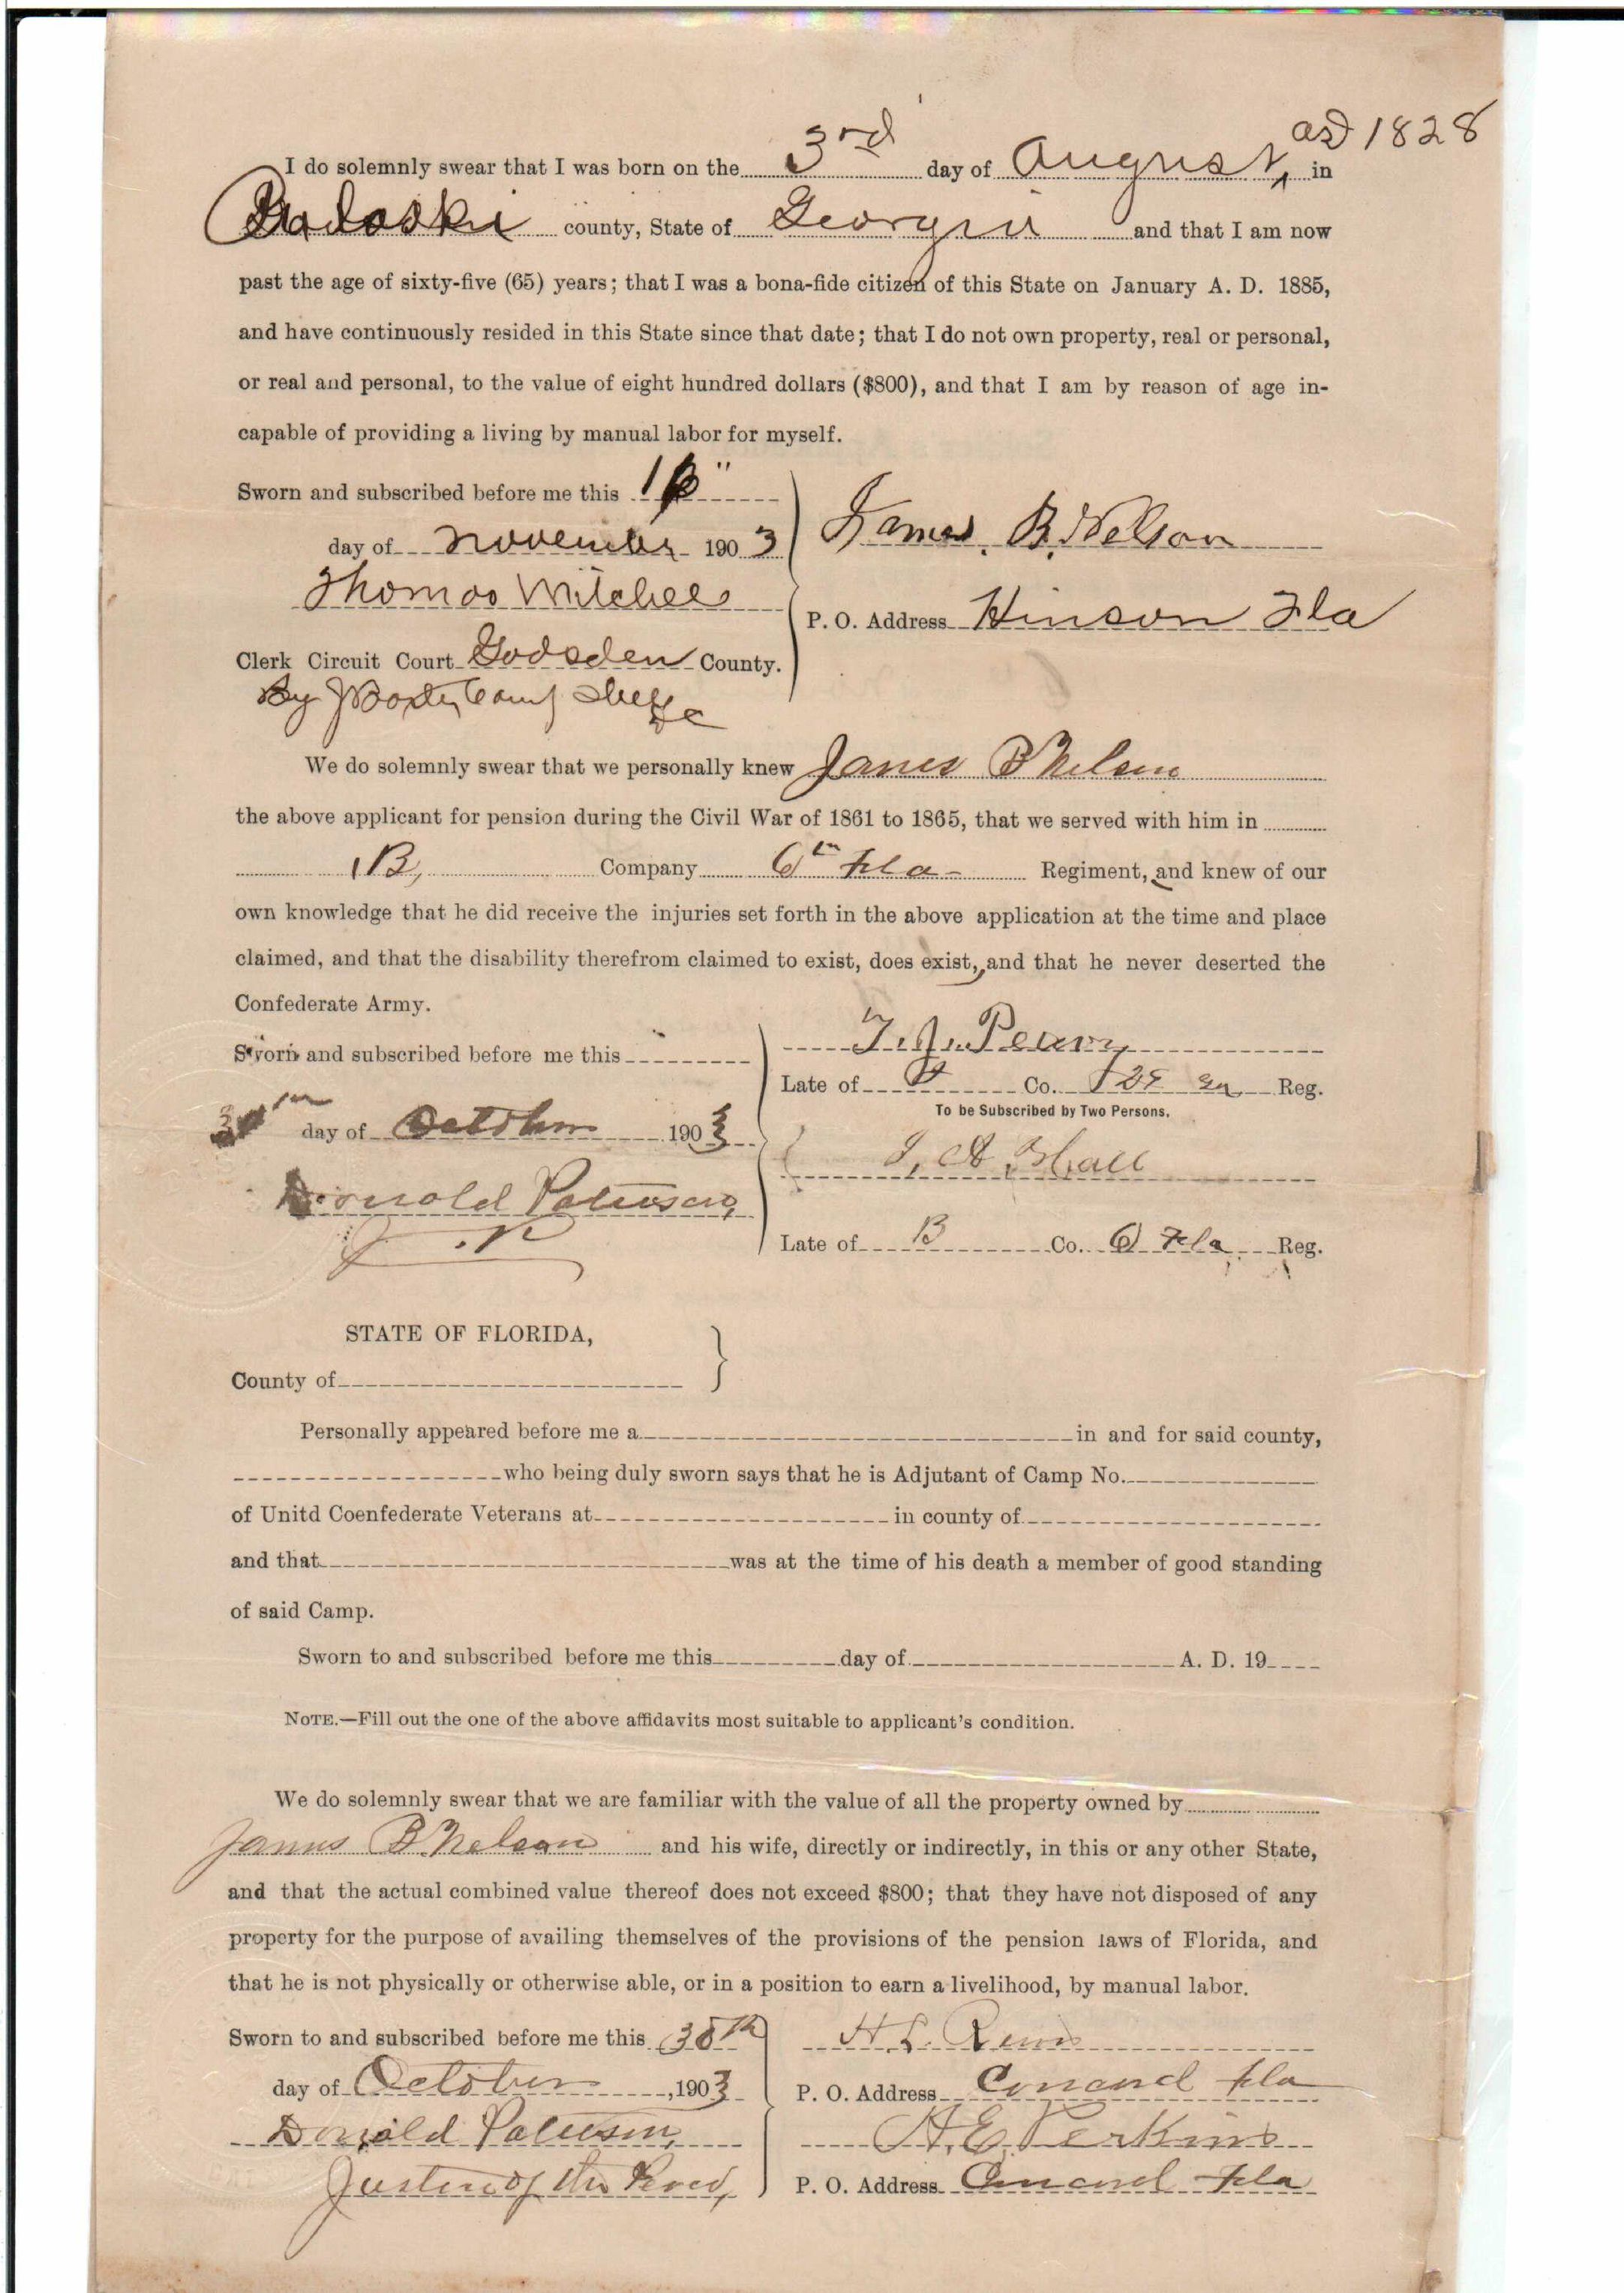 I do solemnly swear that I was born on the 3rd day of August, AD 1828 in
Pulaski county, State of Georgia and that I am now
past the age of sixty-five (65) years; that I was a bona-fide citizen of this State on January A. D. 1885,
and have continuously resided in this State since that date; that I do not own property, real or personal,
or real and personal, to the value of eight hundred dollars ($800), and that I am by reason of age in-
capable of providing a living by manual labor for myself.
Sworn and subscribed before me this
day of November 1903
James B. Nelson
Thomas Mitchell
P. O. Address Hinson Fla
Clerk Circuit Court Gadsden County.
By
We do solemnly swear that we personally knew James B Nelson
the above applicant for pension during the Civil War of 1861 to 1865, that we served with him in
B, Company 6th Fla- Regiment, and knew of our
own knowledge that he did receive the injuries set forth in the above application at the time and place
claimed, and that the disability therefrom claimed to exist, does exist, and that he never deserted the
Confederate Army.
Sworn and subscribed before me this
Late of Co. Reg.
To be Subscribed by Two Persons.
day of October 1903
Hall
Donald
J.P
Late of B Co. 6 Fla Reg.
STATE OF FLORIDA,
County of
Personally appeared before me a in and for said county,
who being duly sworn says that he is Adjutant of Camp No.
of Unitd Coenfederate Veterans at in county of
and that was at the time of his death a member of good standing
of said Camp.
Sworn to and subscribed before me this day of A. D. 19
NOTE.—Fill out the one of the above affidavits most suitable to applicant's condition.
We do solemnly swear that we are familiar with the value of all the property owned by
James B. Nelson and his wife, directly or indirectly, in this or any other State,
and that the actual combined value thereof does not exceed $800; that they have not disposed of any
property for the purpose of availing themselves of the provisions of the pension laws of Florida, and
that he is not physically or otherwise able, or in a position to earn a livelihood, by manual labor.
Sworn to and subscribed before me this 30th
H. L.
day of October, 1903
P. O. Address Concord Fla
Donald
H. E. Perkins
Justice of the Peace,
P. O. Address Concord Fla